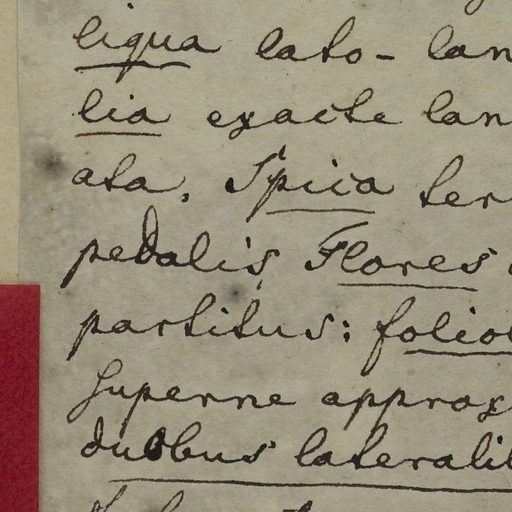 liqua lato- lan
lia exacte lan
ata. Spica ter
pedalis Flores
partitus: foliol
superne approx
duobus laterali